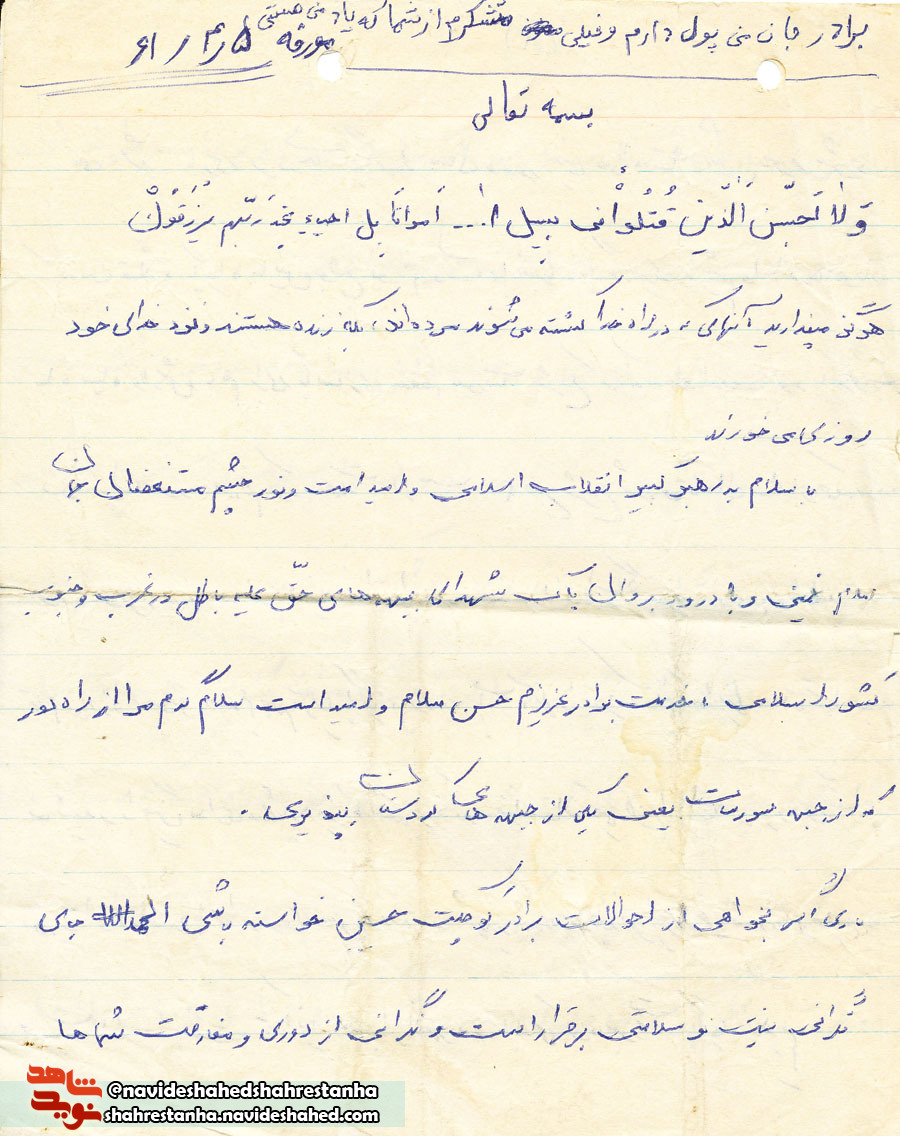 برادر جان من پول دارم و خیلی متشکرم از شما که یاد من هستی
مورخه ۵ / ۴ / ۶۱
بسمه تعالی
وَلا تَحسَبَّن الَّذین قُتُلُواْ فی سبیل ا... اَمواتاً بل احیاءِ عِندَ رَبّهم یُرْزَقُونْ
هرگز مپندارید آنهائیکه در راه خدا کشته می شوند مرده اند بلکه زنده هستند و نزد خدای خود
روزی می خورند
با سلام به رهبر کبیر انقلاب اسلامی و امید امت و نور چشم مستضعفان جهان
امام خمینی و با درود بروان پاک شهدای جبهه های حقّ علیه باطل در غرب و جنوب
کشور اسلامی ، خدمت برادر عزیزم حسن سلام و امید است سلام گرم مرا از راه دور
که از جبهه یعنی یکی از جبهه های کردستان بپذیری .
باری اگر بخواهی از احوالات برادر کوچکت حسین خواسته باشی الحمدالله جای
نگرانی نیست و سلامتی برقرار است و نگرانی از دوری و مفارقت شماها
شاهد نوید
@navideshahedshahrestanha
shahrestanha.navideshahed.com